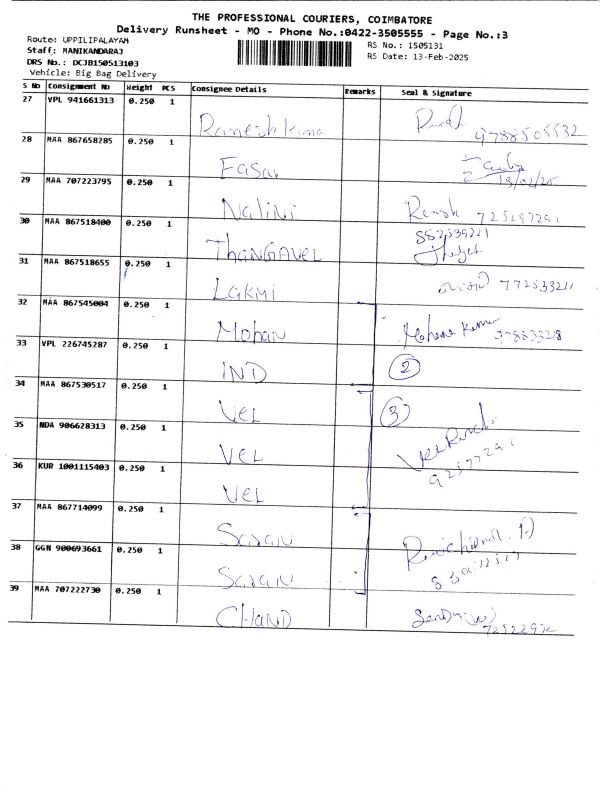 THE PROFESSIONAL COURIERS, COIMBATORE
Delivery Runsheet - MO - Phone No.:0422-3505555 - Page No.:3
Route: UPPILIPALAYAM
RS No.: 1505131
Staff: MANIKANDARAJ
RS Date: 13-Feb-2025
DRS No.: DCJB150513103
Vehicle: Big Bag Delivery
S No Consignment No Weight PCS Consignee Details Remarks Seal & Signature
27 VPL 941661313 0.250 1 Ramesh Kumar 9788505532
28 MAA 867658285 0.250 1 13/02/25
29 MAA 707223795 0.250 1 Nalini
30 MAA 867518400 0.250 1 ThanGAVEL
31 MAA 867518655 0.250 1 Lakmi 772533211
32 MAA 867545004 0.250 1 Mohan
33 VPL 226745287 0.250 1 IND 2
34 MAA 867530517 0.250 1 VEL 3
35 NDA 906628313 0.250 1 VEL
36 KUR 1001115403 0.250 1 VEL
37 MAA 867714099 0.250 1 Saran
38 GGN 900693661 0.250 1 Saran
39 MAA 707222730 0.250 1 CHAND